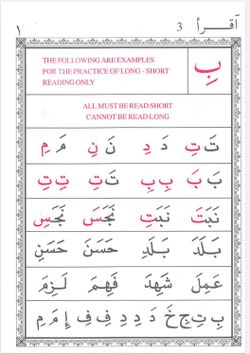 اَقرأ 3 ١
THE FOLLOWING ARE EXAMPLES
FOR THE PRACTICE OF LONG - SHORT
READING ONLY
بِ
ALL MUST BE READ SHORT
CANNOT BE READ LONG
تَ تِ دَ دِ نَ نِ مَ مِ
بَ بَ بِ بِ تَ تِ تِ تِ
نَبَتَ نَبَتِ نَجَسَ نَجَسِ
بَلَدَ بَلَدِ حَسَنَ حَسَنِ
عَمِلَ شَهِدَ فَهِمَ لَزِمَ
بِ تِ جِ خَ دِ دِ دِ فِ فِ إِ مِ مِ